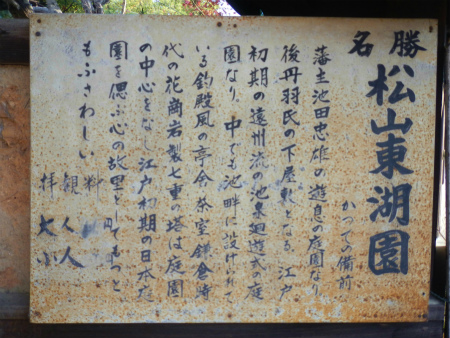 名勝
松山東湖園
かつての備前
藩主池田忠雄の遊息の庭園なり
後丹羽氏の下屋敷となる、江戸
初期の遠州流の池泉廻遊式の庭
園なり、中でも池畔に設けられて
いる釣殿風の亭舎茶室鎌倉時
代の花崗岩製七重の塔は庭園
の中心をなし江戸初期の日本庭
園を偲ぶ心の故里としてもつと
もふさわしい
拝観料
大人
小人
円